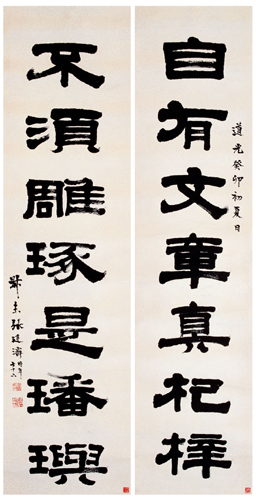 自有文章真杞梓
道光癸卯初夏日
不須雕琢是璠璵
張廷濟時年七十六